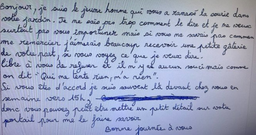 Bonjour, je suis le jeune homme qui vous a ramassé la souris dans
votre jardin. Je ne sais pas trop comment le dire et je ne veux
surtout pas vous importuner mais si vous ne savez pas comment
me remercier j'aimerais beaucoup recevoir une petite
de votre part si vous voyez ce que je veux dire.
Libre à vous de refuser et il n'y a aucun souci mais comme
on dit "Qui ne tente rien, n'a rien".
Si vous êtes d'accord je suis souvent là devant chez vous en
semaine vers 15h,
donc vous pouvez peut être mettre un petit détail sur votre
portail pour me le faire savoir
Bonne journée à vous